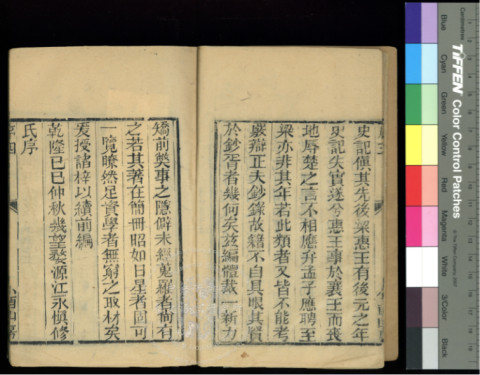 史記傎其先後梁惠王有後元之年
史記失實遂兮惠王事於襄王而喪
地辱楚之言不相應弁孟子應聘至
梁亦非其年若此類者又皆不能考
嚴辯正夫鈔錄故籍不自具眼其賢
於鈔胥者幾何矣茲編體裁一新力
矯前獘事之隱僻未經蒐羅者尚有
之若其著在簡冊昭如日星者固可
一覽瞭然足資學者無窮之取材矣
爰授諸梓以續前編
乾隆己巳仲秋幾望婺源江永愼修
氏序
序四
TIFFEN Color Control Patches
© The Tiffen Company, 2007
Centimetres
Blue
Cyan
Green
Yellow
Red
Magenta
White
3/Color
Black